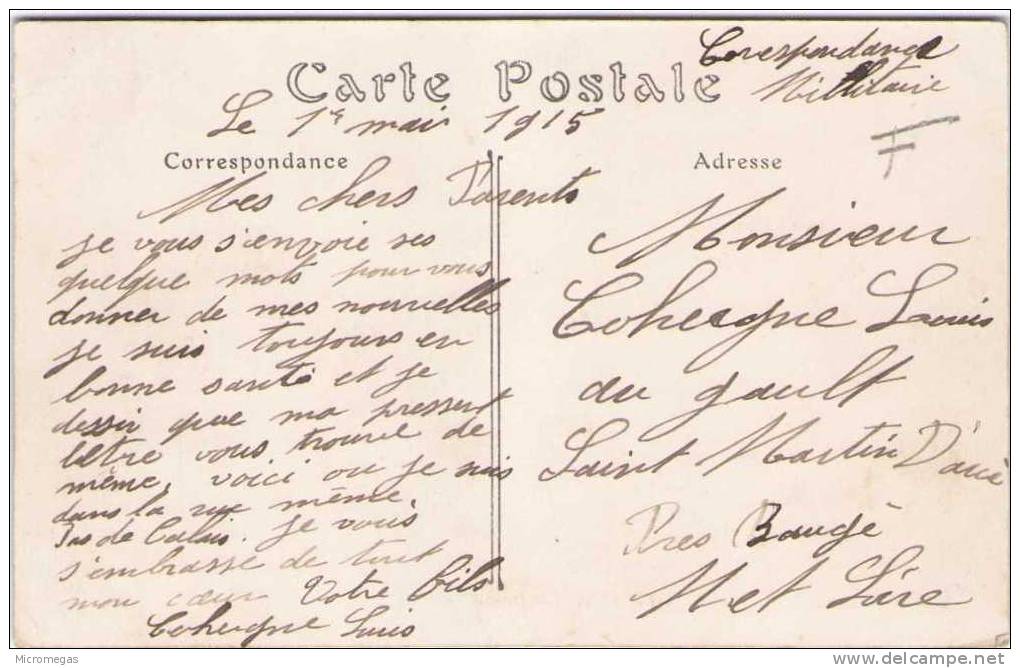 Corespondance
Millitaire
Carte Postale
F
Le 1er mai 1915
Correspondance
Mes chers Parents
je vous s'envoie ses
quelque mots pour vous
donner de mes nouvelles
je suis toujours en
bonne santé et je
dessir que ma pressent
lettre vous trouve de
même, voici ou je suis
dans la rue même.
Pas de Calais. je vous
s'embrasse de tout
mon cœur Votre fils
Cohergne Louis
Adresse
Monsieur
Cohergne Louis
au gault
Saint Martin D'arcé
Pres Baugé
M et Loire
Micromegas
www.delcampe.net